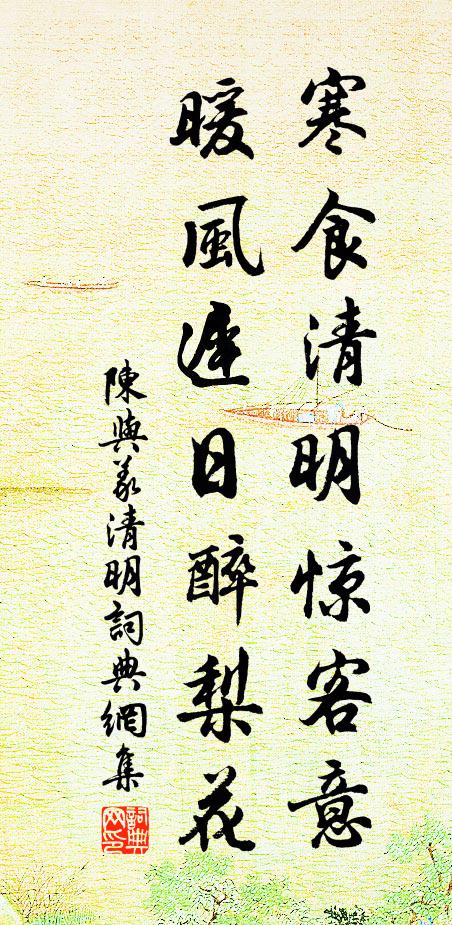 寒食清明惊客意
暖風遲日醉梨花
陳與義清明詞典網集
詞典网印